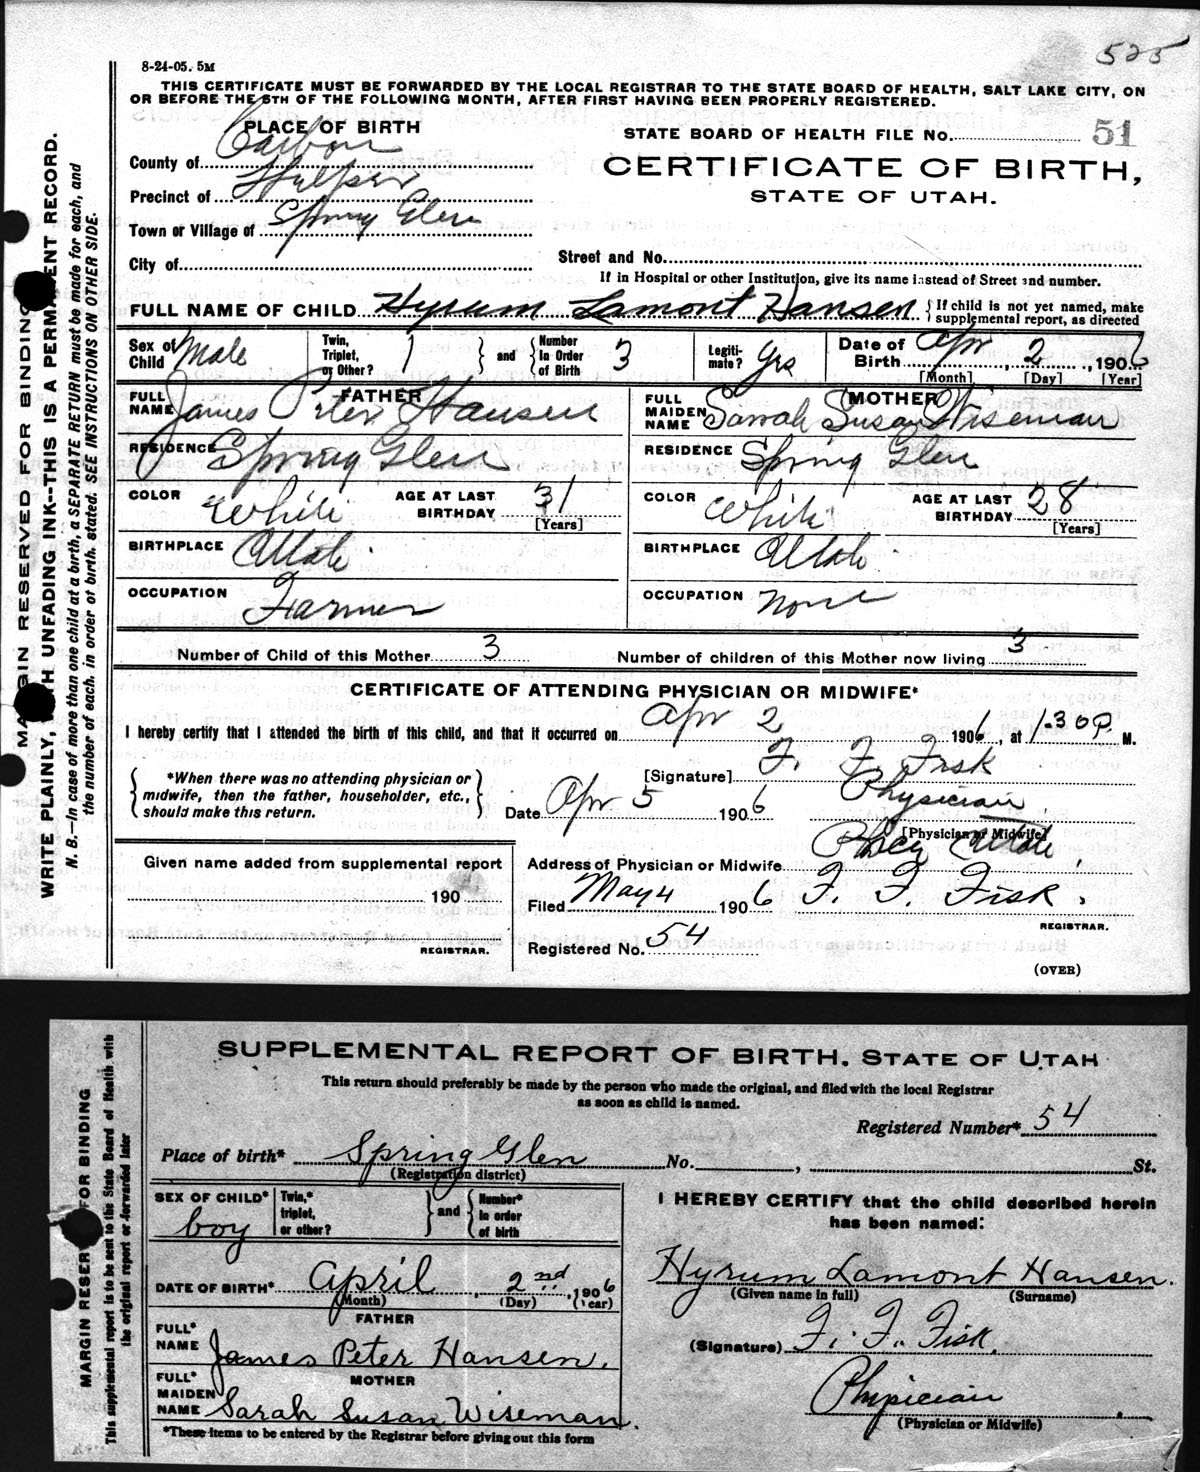 525
8-24-05. 5M
THIS CERTIFICATE MUST BE FORWARDED BY THE LOCAL REGISTRAR TO THE STATE BOARD OF HEALTH, SALT LAKE CITY, ON
OR BEFORE THE 5TH OF THE FOLLOWING MONTH, AFTER FIRST HAVING BEEN PROPERLY REGISTERED.
PLACE OF BIRTH
STATE BOARD OF HEALTH FILE No. 51
County of Carbon
CERTIFICATE OF BIRTH,
Precinct of Helper
STATE OF UTAH.
Town or Village of Spring Glen
City of
Street and No.
If in Hospital or other Institution, give its name instead of Street and number.
FULL NAME OF CHILD Hyrum Lamont Hansen { If child is not yet named, make supplemental report, as directed
Sex of Child Male Twin, Triplet, or Other? 1 } and { Number In Order of Birth 3 Legiti-mate? Yes Date of Birth Apr 2, 1906
[Month] [Day] [Year]
FATHER
FULL NAME James Peter Hansen
RESIDENCE Spring Glen
COLOR White AGE AT LAST BIRTHDAY 31
[Years]
BIRTHPLACE Utah
OCCUPATION Farmer
MOTHER
FULL MAIDEN NAME Sarrah Susan Wiseman
RESIDENCE Spring Glen
COLOR White AGE AT LAST BIRTHDAY 28
[Years]
BIRTHPLACE Utah
OCCUPATION None
Number of Child of this Mother 3 Number of children of this Mother now living 3
CERTIFICATE OF ATTENDING PHYSICIAN OR MIDWIFE*
I hereby certify that I attended the birth of this child, and that it occurred on Apr 2 1906, at 1.30 P. M.
{ *When there was no attending physician or midwife, then the father, householder, etc., should make this return. }
[Signature] F. F. Fisk
Date Apr 5 1906 Physician
[Physician or Midwife]
Given name added from supplemental report
190
REGISTRAR.
Address of Physician or Midwife Price Utah
Filed May 4 1906 F. F. Fisk.
REGISTRAR.
Registered No. 54
(OVER)
MARGIN RESERVED FOR BINDING
WRITE PLAINLY, WITH UNFADING INK--THIS IS A PERMANENT RECORD.
N. B.—In case of more than one child at a birth, a SEPARATE RETURN must be made for each, and
the number of each, in order of birth, stated. SEE INSTRUCTIONS ON OTHER SIDE.
SUPPLEMENTAL REPORT OF BIRTH. STATE OF UTAH
This return should preferably be made by the person who made the original, and filed with the local Registrar
as soon as child is named.
Registered Number* 54
Place of birth* Spring Glen No. , St.
(Registration district)
SEX OF CHILD* boy Twin,* triplet, or other? } and { Number* in order of birth
DATE OF BIRTH* April 2nd, 1906
(Month) (Day) (Year)
FATHER
FULL* NAME James Peter Hansen.
MOTHER
FULL* MAIDEN NAME Sarah Susan Wiseman.
*These items to be entered by the Registrar before giving out this form
I HEREBY CERTIFY that the child described herein
has been named:
Hyrum Lamont Hansen.
(Given name in full) (Surname)
(Signature) F. F. Fisk.
Physician
(Physician or Midwife)
MARGIN RESERVED FOR BINDING
This supplemental report is to be sent to the State Board of Health with
the original report or forwarded later